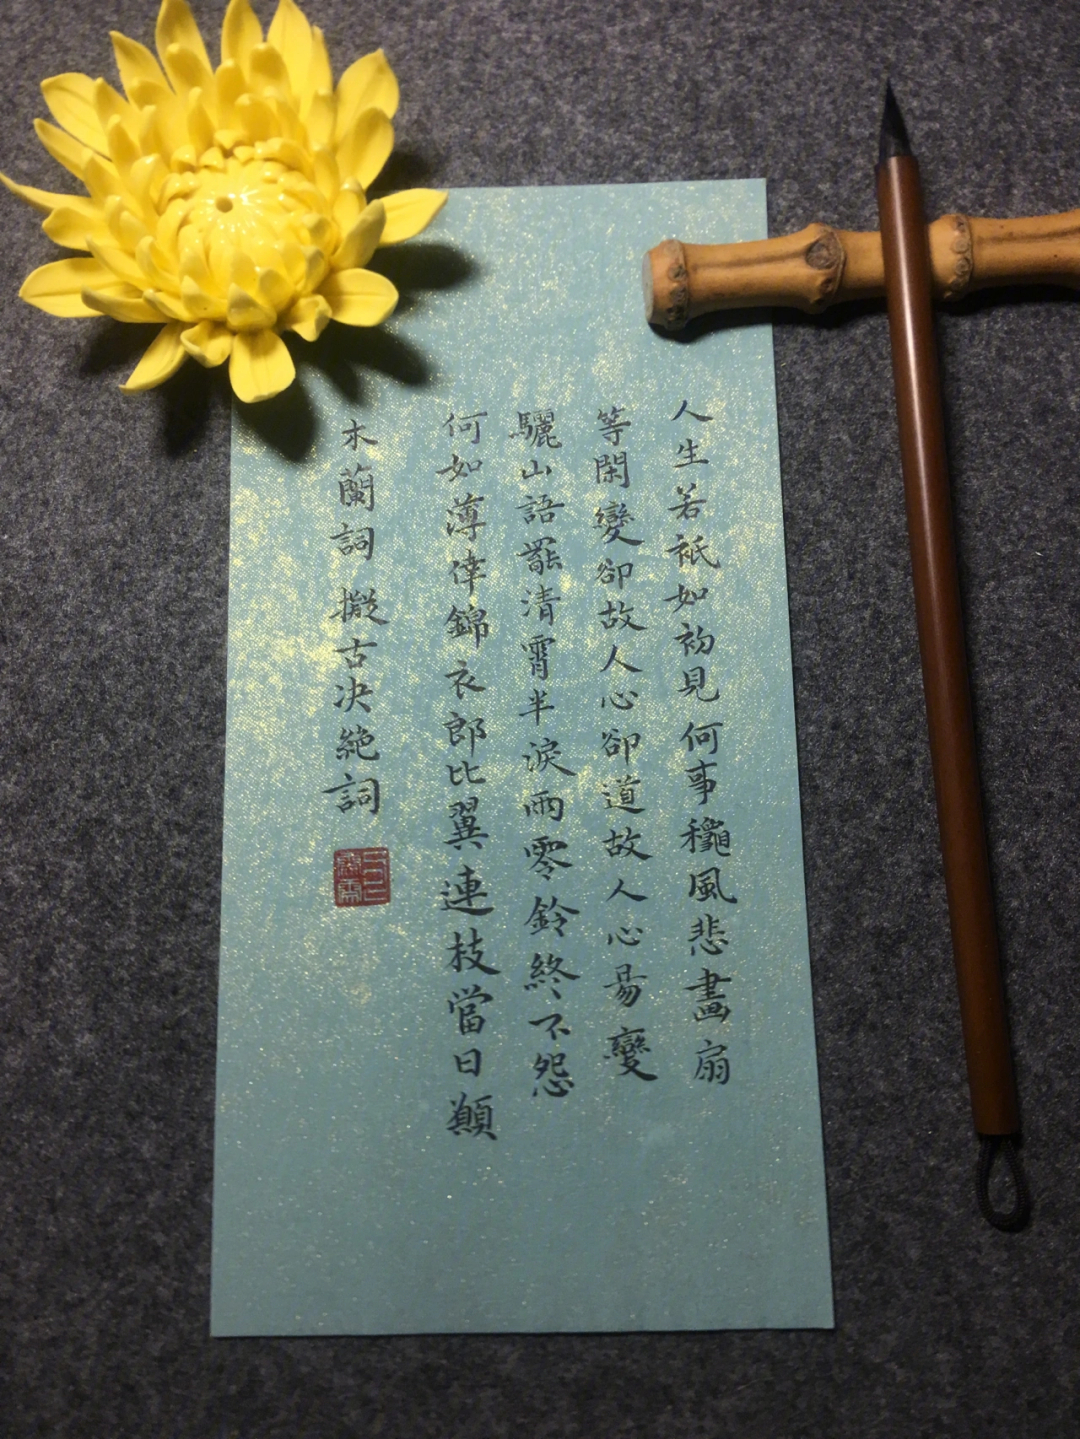 人生若祇如初見何事龝風悲畫扇
等閑變卻故人心卻道故人心易變
驪山語罷清霄半淚雨零鈴終不怨
何如薄倖錦衣郎比翼連枝當日願
木蘭詞 擬古决絶詞